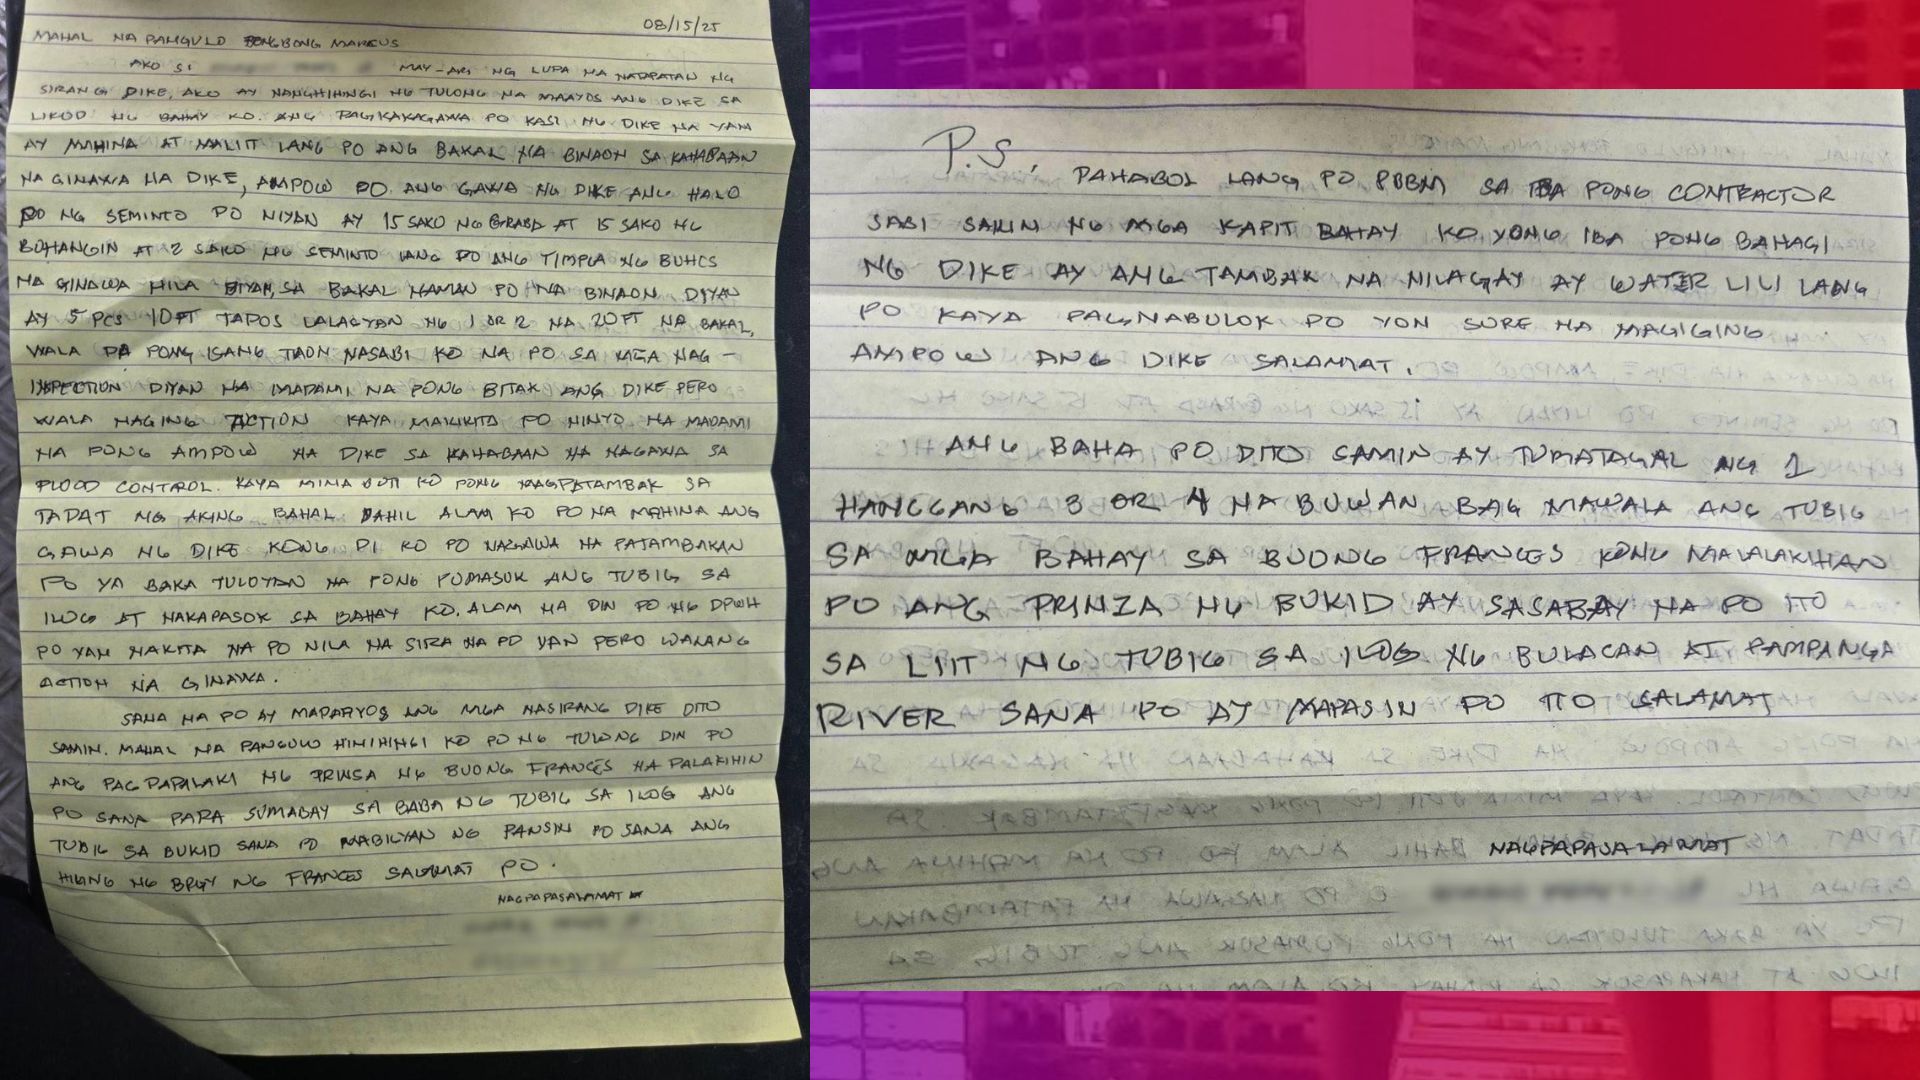 08/15/25
MAHAL NA PANGULO BONGBONG MARCUS
AKO SI MAY-ARI NG LUPA NA NATAPATAN NG
SIRANG DIKE, AKO AY NANGHIHINGI NG TULONG NA MAAYOS ANG DIKE SA
LIKOD NG BAHAY KO. ANG PAGKAKAGAWA PO KASI NG DIKE NA YAN
AY MAHINA AT MALIIT LANG PO ANG BAKAL NA BINAON SA KAHABAAN
NA GINAWA NA DIKE, AMPOW PO ANG GAWA NG DIKE ANG HALO
PO NG SEMINTO PO NIYAN AY 15 SAKO NG GRABA AT 15 SAKO NG
BUHANGIN AT 2 SAKO NG SEMINTO LANG PO ANG TIMPLA NG BUHOS
NA GINAWA NILA DIYAN, SA BAKAL NAMAN PO NA BINAON DIYAN
AY 5 PCS 10FT TAPOS LALAGYAN NG 1 OR 2 NA 20FT NA BAKAL,
WALA PA PONG ISANG TAON NASABI KO NA PO SA MGA NAG-
INSPECTION DIYAN NA MADAMI NA PONG BITAK ANG DIKE PERO
WALA NAGING ACTION KAYA MAKIKITA PO NINYO NA MADAMI
NA PONG AMPOW NA DIKE SA KAHABAAN NA NAGAWA SA
FLOOD CONTROL. KAYA MINABUTI KO PONG MAGPATAMBAK SA
TAPAT NG AKING BAHAL DAHIL ALAM KO PO NA MAHINA ANG
GAWA NG DIKE KONG DI KO PO NAGAWA NA PATAMBAKAN
PO YA BAKA TULOYAN NA PONG PUMASUK ANG TUBIG SA
ILOG AT NAKAPASOK SA BAHAY KO. ALAM NA DIN PO NG DPWH
PO YAN NAKITA NA PO NILA NA SIRA NA PO YAN PERO WALANG
ACTION NA GINAWA.
SANA NA PO AY MAPAAYOS ANG MGA NASIRANG DIKE DITO
SAMIN. MAHAL NA PANGULO HINIHINGI KO PO NG TULONG DIN PO
ANG PAGPAPALAKI NG PRINSA NG BUONG FRANCES NA PALAKIHIN
PO SANA PARA SUMABAY SA BABA NG TUBIG SA ILOG ANG
TUBIG SA BUKID SANA PO MABILYAN NG PANSIN PO SANA ANG
HILING NG BRGY NG FRANCES SALAMAT PO.
NAGPAPASALAMAT
P.S. PAHABOL LANG PO PBBM SA IBA PONG CONTRACTOR
SABI SAMIN NG MGA KAPIT BAHAY KO YONG IBA PONG BAHAGI
NG DIKE AY ANG TAMBAK NA NILAGAY AY WATER LILI LANG
PO KAYA PAGNABULOK PO YON SURE NA MAGIGING
AMPOW ANG DIKE SALAMAT.
ANG BAHA PO DITO SAMIN AY TUMATAGAL NG 1
HANGGANG 3 OR 4 NA BUWAN BAG MAWALA ANG TUBIG
SA MGA BAHAY SA BUONG FRANCES KONG MALALAKIHAN
PO ANG PRINZA NG BUKID AY SASABAY NA PO ITO
SA LIIT NG TUBIG SA ILOG NG BULACAN AT PAMPANGA
RIVER SANA PO AY MAPASIN PO ITO SALAMAT
NAGPAPASALAMAT